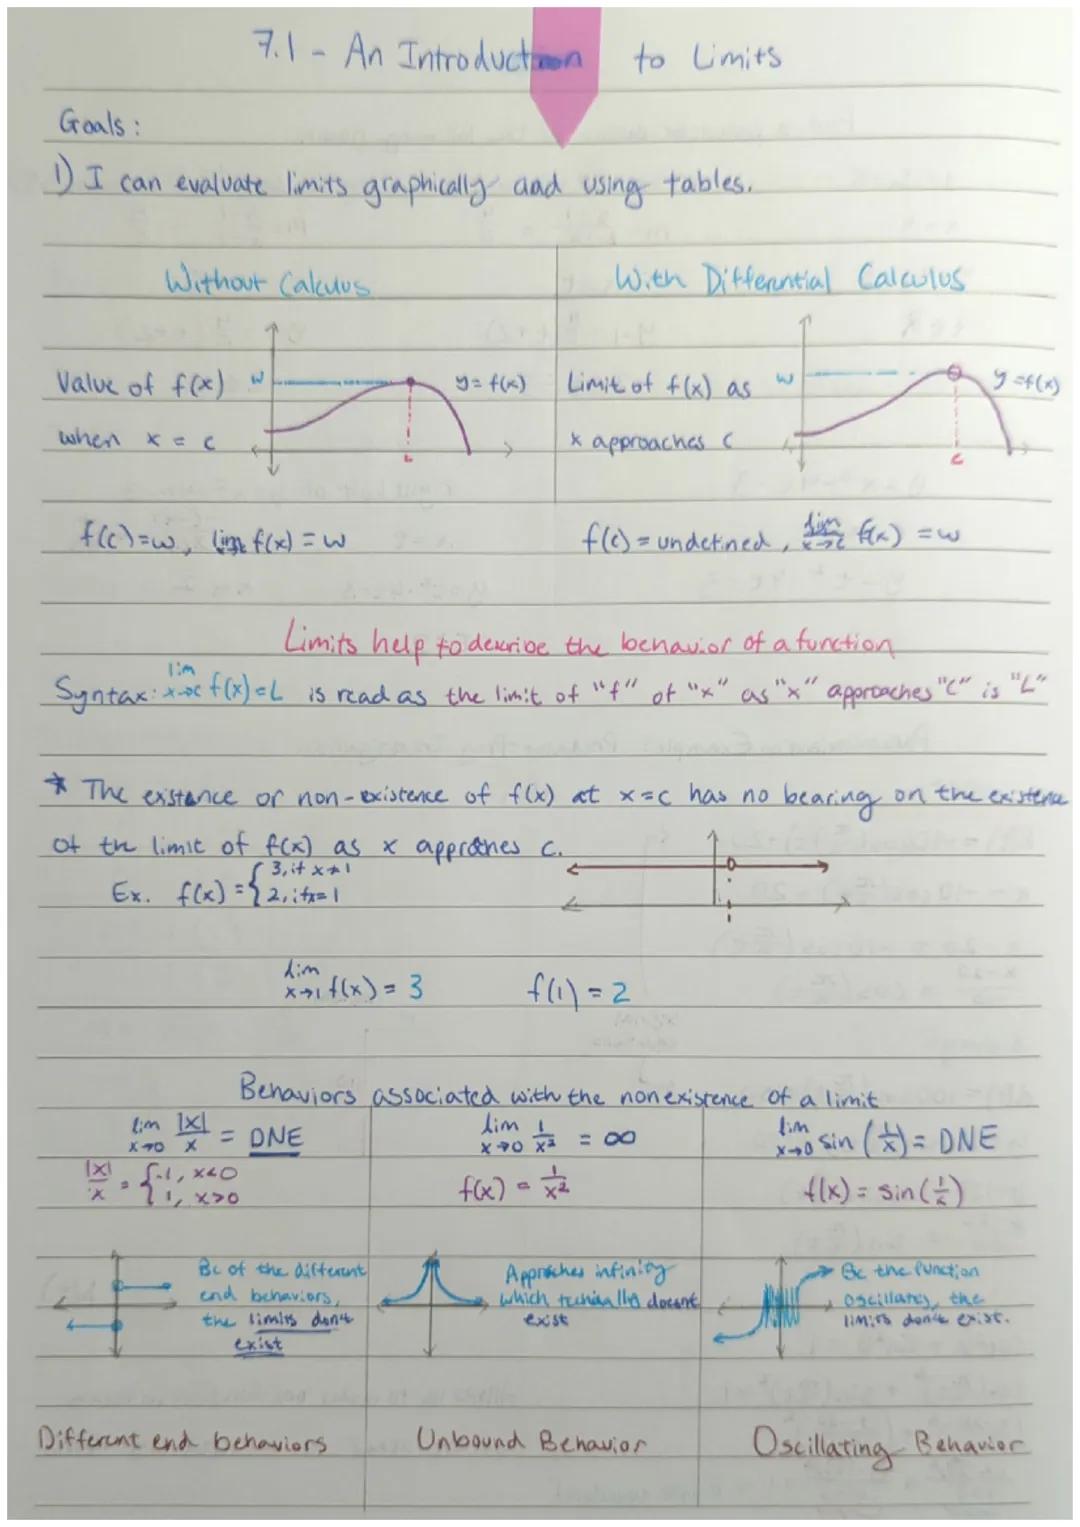 7.1 - An Introduction to Limits
Goals:
1) I can evaluate limits graphically and using tables.
Without Calculus
With Differential Calculus
Value of f(x)
when x = c
w
y = f(x)
c
Limit of f(x) as
x approaches c
w
y = f(x)
c
f(c)=w, lim f(x) = w
f(c) = undefined, lim x→c f(x) = w
Limits help to describe the behavior of a function
Syntax: lim x→c f(x)=L is read as the limit of "f" of "x" as "x" approaches "C" is "L"
* The existance or non-existence of f(x) at x=c has no bearing on the existence
of the limit of f(x) as x approches c.
Ex. f(x) = { 3, if x≠1
2, if x=1
lim x→1 f(x) = 3
f(1) = 2
Behaviors associated with the nonexistence of a limit
lim x→0 |x|/x = DNE
|x|/x = { -1, x<0
1, x>0
Bc of the different
end behaviors,
the limits don't
exist
Different end behaviors
lim x→0 1/x² = ∞
f(x) = 1/x²
Approches infinity
which techinally doesnt
exist
Unbound Behavior
lim x→0 sin(1/x) = DNE
f(x) = sin(1/x)
Bc the function
oscillates, the
limits don't exist.
Oscillating Behavior